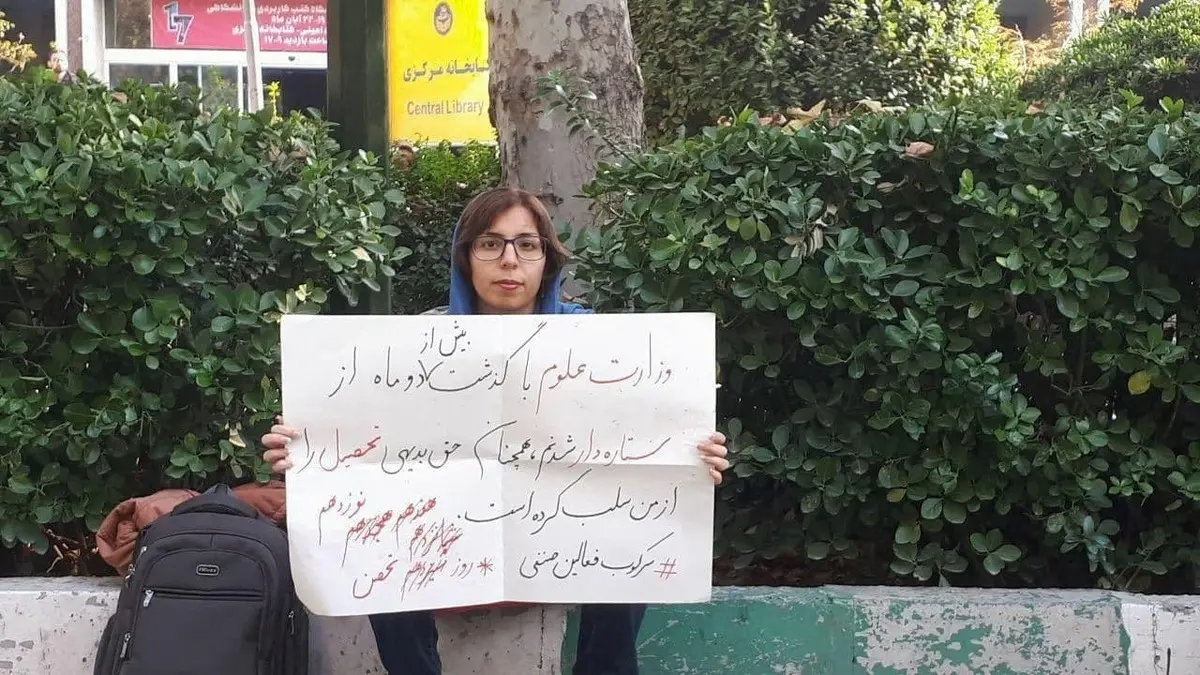 ۱۹-۲۲ آبان ماه
کتابخانه مرکزی
Central Library
بیش از
وزارت علوم با گذشت دو ماه از
ستاره‌دار شدنم، همچنان حق بدیهی تحصیل را
از من سلب کرده است.
#سرکوب فعالین صنفی
نوزدهم
هفدهم هجدهم
*روز تحصن